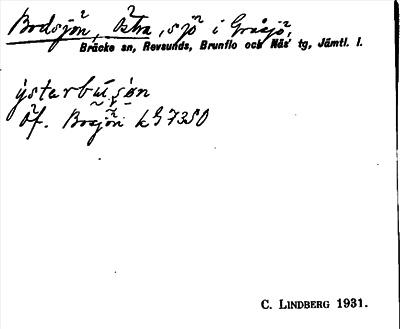 Bodsjön, Östra, sjö i Gråsjö,
Bräcke sn, Revsunds, Brunflo och Näs tg, Jämtl. l.
ýstarbú̄sǝn
Öf. Bosjön kG 7350
C. LINDBERG 1931.